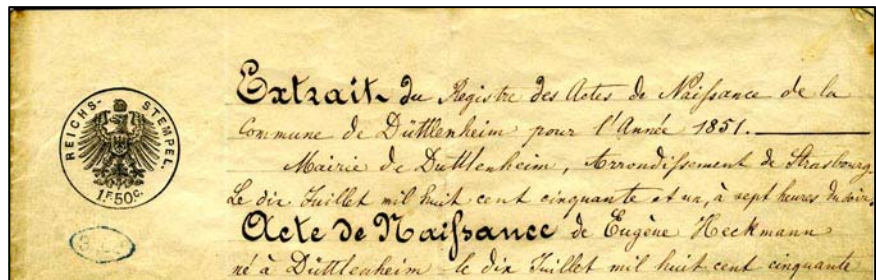 Extrait du Registre des Actes de Naissance de la
Commune de Düttlenheim pour l'Année 1851.
Mairie de Duttlenheim, Arrondissement de Strasbourg.
Le dix Juillet mil huit cent cinquante et un, à sept heures du soir.
Acte de Naissance de Eugène Heckmann
né à Düttlenheim le dix Juillet mil huit cent cinquante
REICHS-STEMPEL.
1.F.50C.